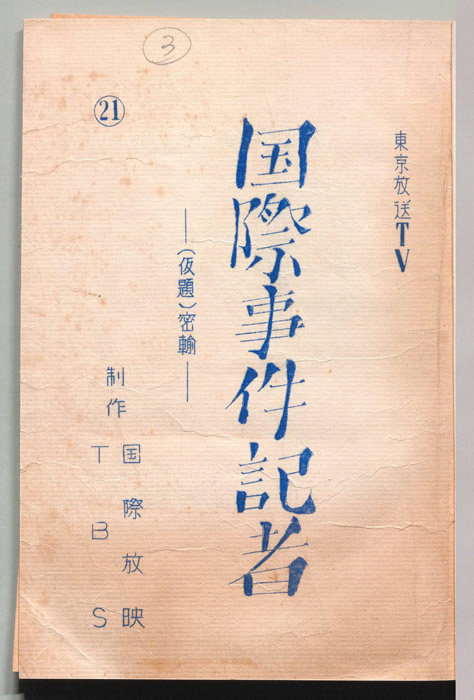 ③
東京放送TV
国際事件記者
―(仮題)密輸―
㉑
制作
国際放映
TBS